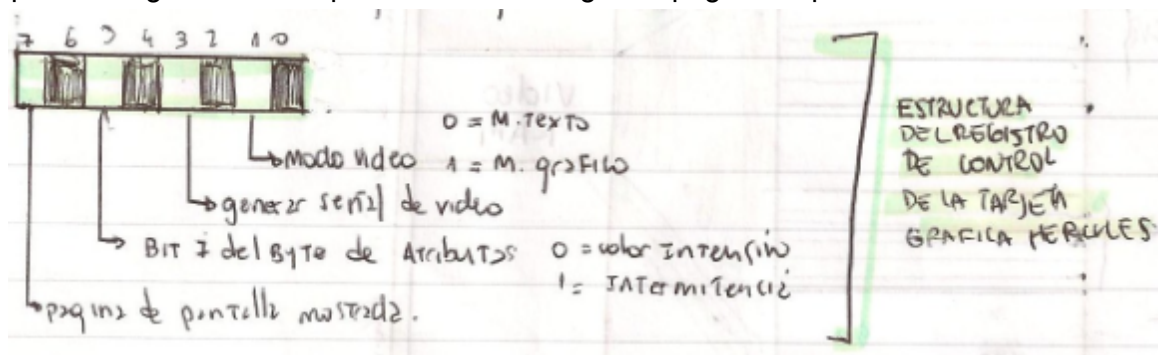 7 6 5 4 3 2 1 0
0 = M. TEXTO
modo video 1 = M. grafico
generar señal de video
BIT 7 del Byte de Atributos 0 = color Intensivo
1 = Intermitencia
pagina de pantalla mostrada.
ESTRUCTURA
DEL REGISTRO
DE CONTROL
DE LA TARJETA
GRAFICA HERCULES